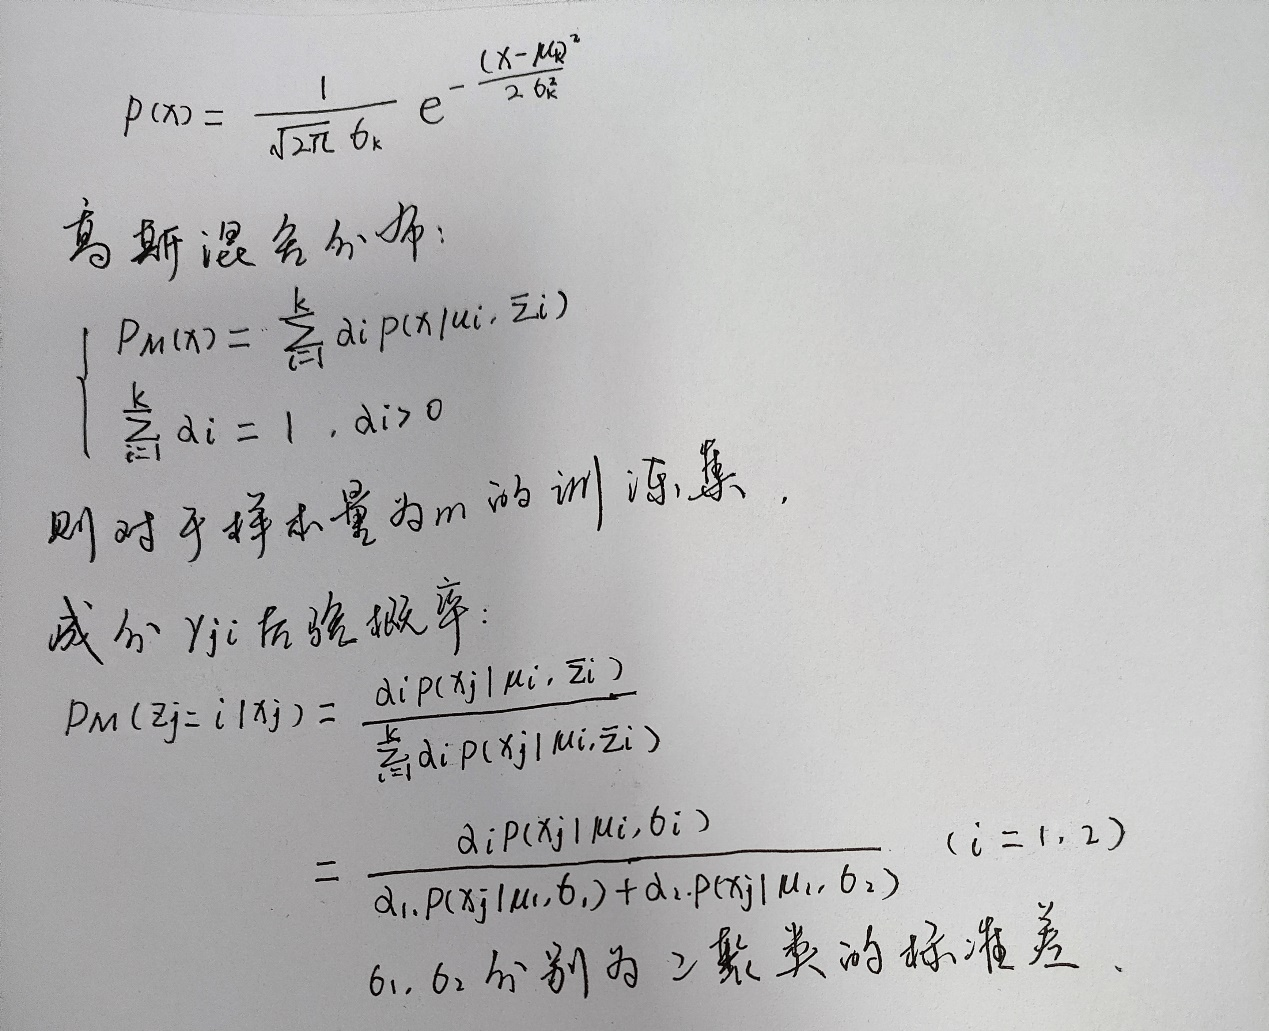 p(x) = \frac{1}{\sqrt{2π} σ_k} e^{-\frac{(x-μ_k)^2}{2σ_k^2}}
高斯混合分布:
P_M(x) = \sum_{i=1}^{k} α_i p(x|μ_i, Σ_i)
\sum_{i=1}^{k} α_i = 1, α_i > 0
则对于样本量为m的训练集,
成分γ_{ji}后验概率:
P_M(z_j=i|x_j) = \frac{α_i p(x_j|μ_i, Σ_i)}{\sum_{i=1}^{k} α_i p(x_j|μ_i, Σ_i)}
= \frac{α_i p(x_j|μ_i, σ_i)}{α_1·p(x_j|μ_1, σ_1) + α_2·p(x_j|μ_2, σ_2)} (i=1,2)
σ_1, σ_2 分别为2聚类的标准差.